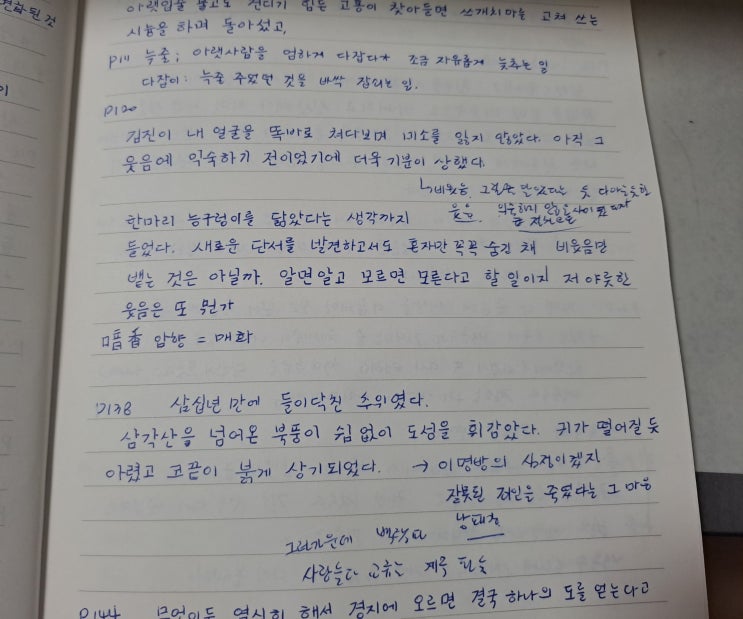 아랫입술 물고도 견디기 힘든 고통이 찾아들면 쓰개치마를 고쳐 쓰는
시늉을 하며 돌아섰고,
P111 늑줄; 아랫사람을 엄하게 다잡다* 조금 자유롭게 늦추는 일
다잡이: 늑줄 주었던 것을 바싹 잡죄는 일.
P120
김진이 내 얼굴을 똑바로 쳐다보며 미소를 잃지 않았다. 아직 그
웃음에 익숙하기 전이었기에 더욱 기분이 상했다.
↳비웃음,
웃음.
한마리 능구렁이를 닮았다는 생각까지
들었다. 새로운 단서를 발견하고서도 혼자만 꼭꼭 숨긴 채 비웃음만
뱉는 것은 아닐까. 알면 알고 모르면 모른다고 할 일이지 저 야릇한
웃음은 또 뭔가
暗香 암향 = 매화
P138 삼십년 만에 들이닥친 추위였다.
삼각산을 넘어온 북풍이 쉼 없이 도성을 휘감았다. 귀가 떨어질 듯
아렸고 코끝이 붉게 상기되었다. → 이명방의 심정이겠지
잘못된 죄인을 죽였다는 그 마음
그런가운데 백수들과
사람들과 교류는 계속
P144 무엇이든 열심히 해서 경지에 오르면 결국 하나의 도를 얻는다고